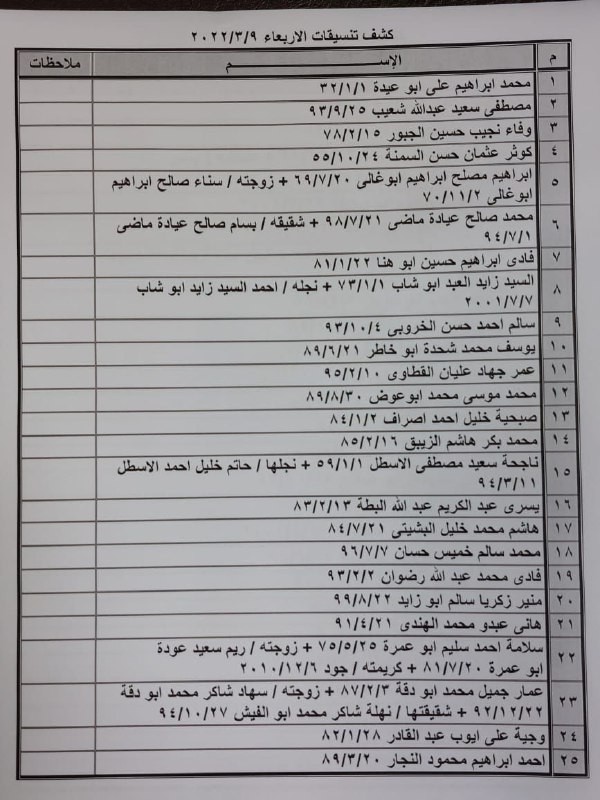 كشف تنسيقات الاربعاء ٢٠٢٢/٣/٩
م الإســـم ملاحظات
١ محمد ابراهيم على ابو عيدة ٣٢/١/١
٢ مصطفى سعيد عبدالله شعيب ٩٣/٩/٢٥
٣ وفاء نجيب حسين الجبور ٧٨/٢/١٥
٤ كوثر عثمان حسن السمنة ٥٥/١٠/٢٤
٥ ابراهيم مصلح ابراهيم ابوغالى ٦٩/٧/٢٠ + زوجته / سناء صالح ابراهيم
ابوغالى ٧٠/١١/٢
٦ محمد صالح عيادة ماضى ٩٨/٧/٢١ + شقيقه / بسام صالح عيادة ماضى
٩٤/٧/١
٧ فادى ابراهيم حسين ابو هنا ٨١/١/٢٢
٨ السيد زايد العبد ابو شاب ٧٣/١/١ + نجله / احمد السيد زايد ابو شاب
٢٠٠١/٧/٧
٩ سالم احمد حسن الخروبى ٩٣/١٠/٤
١٠ يوسف محمد شحدة ابو خاطر ٨٩/٦/٢١
١١ عمر جهاد عليان القطاوى ٩٥/٢/١٠
١٢ محمد موسى محمد ابوعوض ٨٩/٨/٣٠
١٣ صبحية خليل احمد اصراف ٨٤/١/٢
١٤ محمد بكر هاشم الزيبق ٨٥/٢/١٦
١٥ ناجحة سعيد مصطفى الاسطل ٥٩/١/١ + نجلها / حاتم خليل احمد الاسطل
٩٤/٣/١١
١٦ يسرى عبد الكريم عبد الله البطة ٨٣/٢/١٣
١٧ هاشم محمد خليل البشيتى ٨٤/٧/٢١
١٨ محمد سالم خميس حسان ٩٦/٧/٧
١٩ فادى محمد عبد الله رضوان ٩٣/٢/٢
٢٠ منير زكريا سالم ابو زايد ٩٩/٨/٢٢
٢١ هانى عبدو محمد الهندى ٩١/٤/٢١
٢٢ سلامة احمد سليم ابو عمرة ٧٥/٥/٢٥ + زوجته / ريم سعيد عودة
ابو عمرة ٨١/٧/٢٠ + كريمته / جود ٢٠١٠/١٢/٦
٢٣ عمار جميل محمد ابو دقة ٨٧/٢/٣ + زوجته / سهاد شاكر محمد ابو دقة
٩٢/١٢/٢٢ + شقيقتها / نهلة شاكر محمد ابو الفيش ٩٤/١٠/٢٧
٢٤ وجية على ايوب عبد القادر ٨٢/١/٢٨
٢٥ احمد ابراهيم محمود النجار ٨٩/٣/٢٠